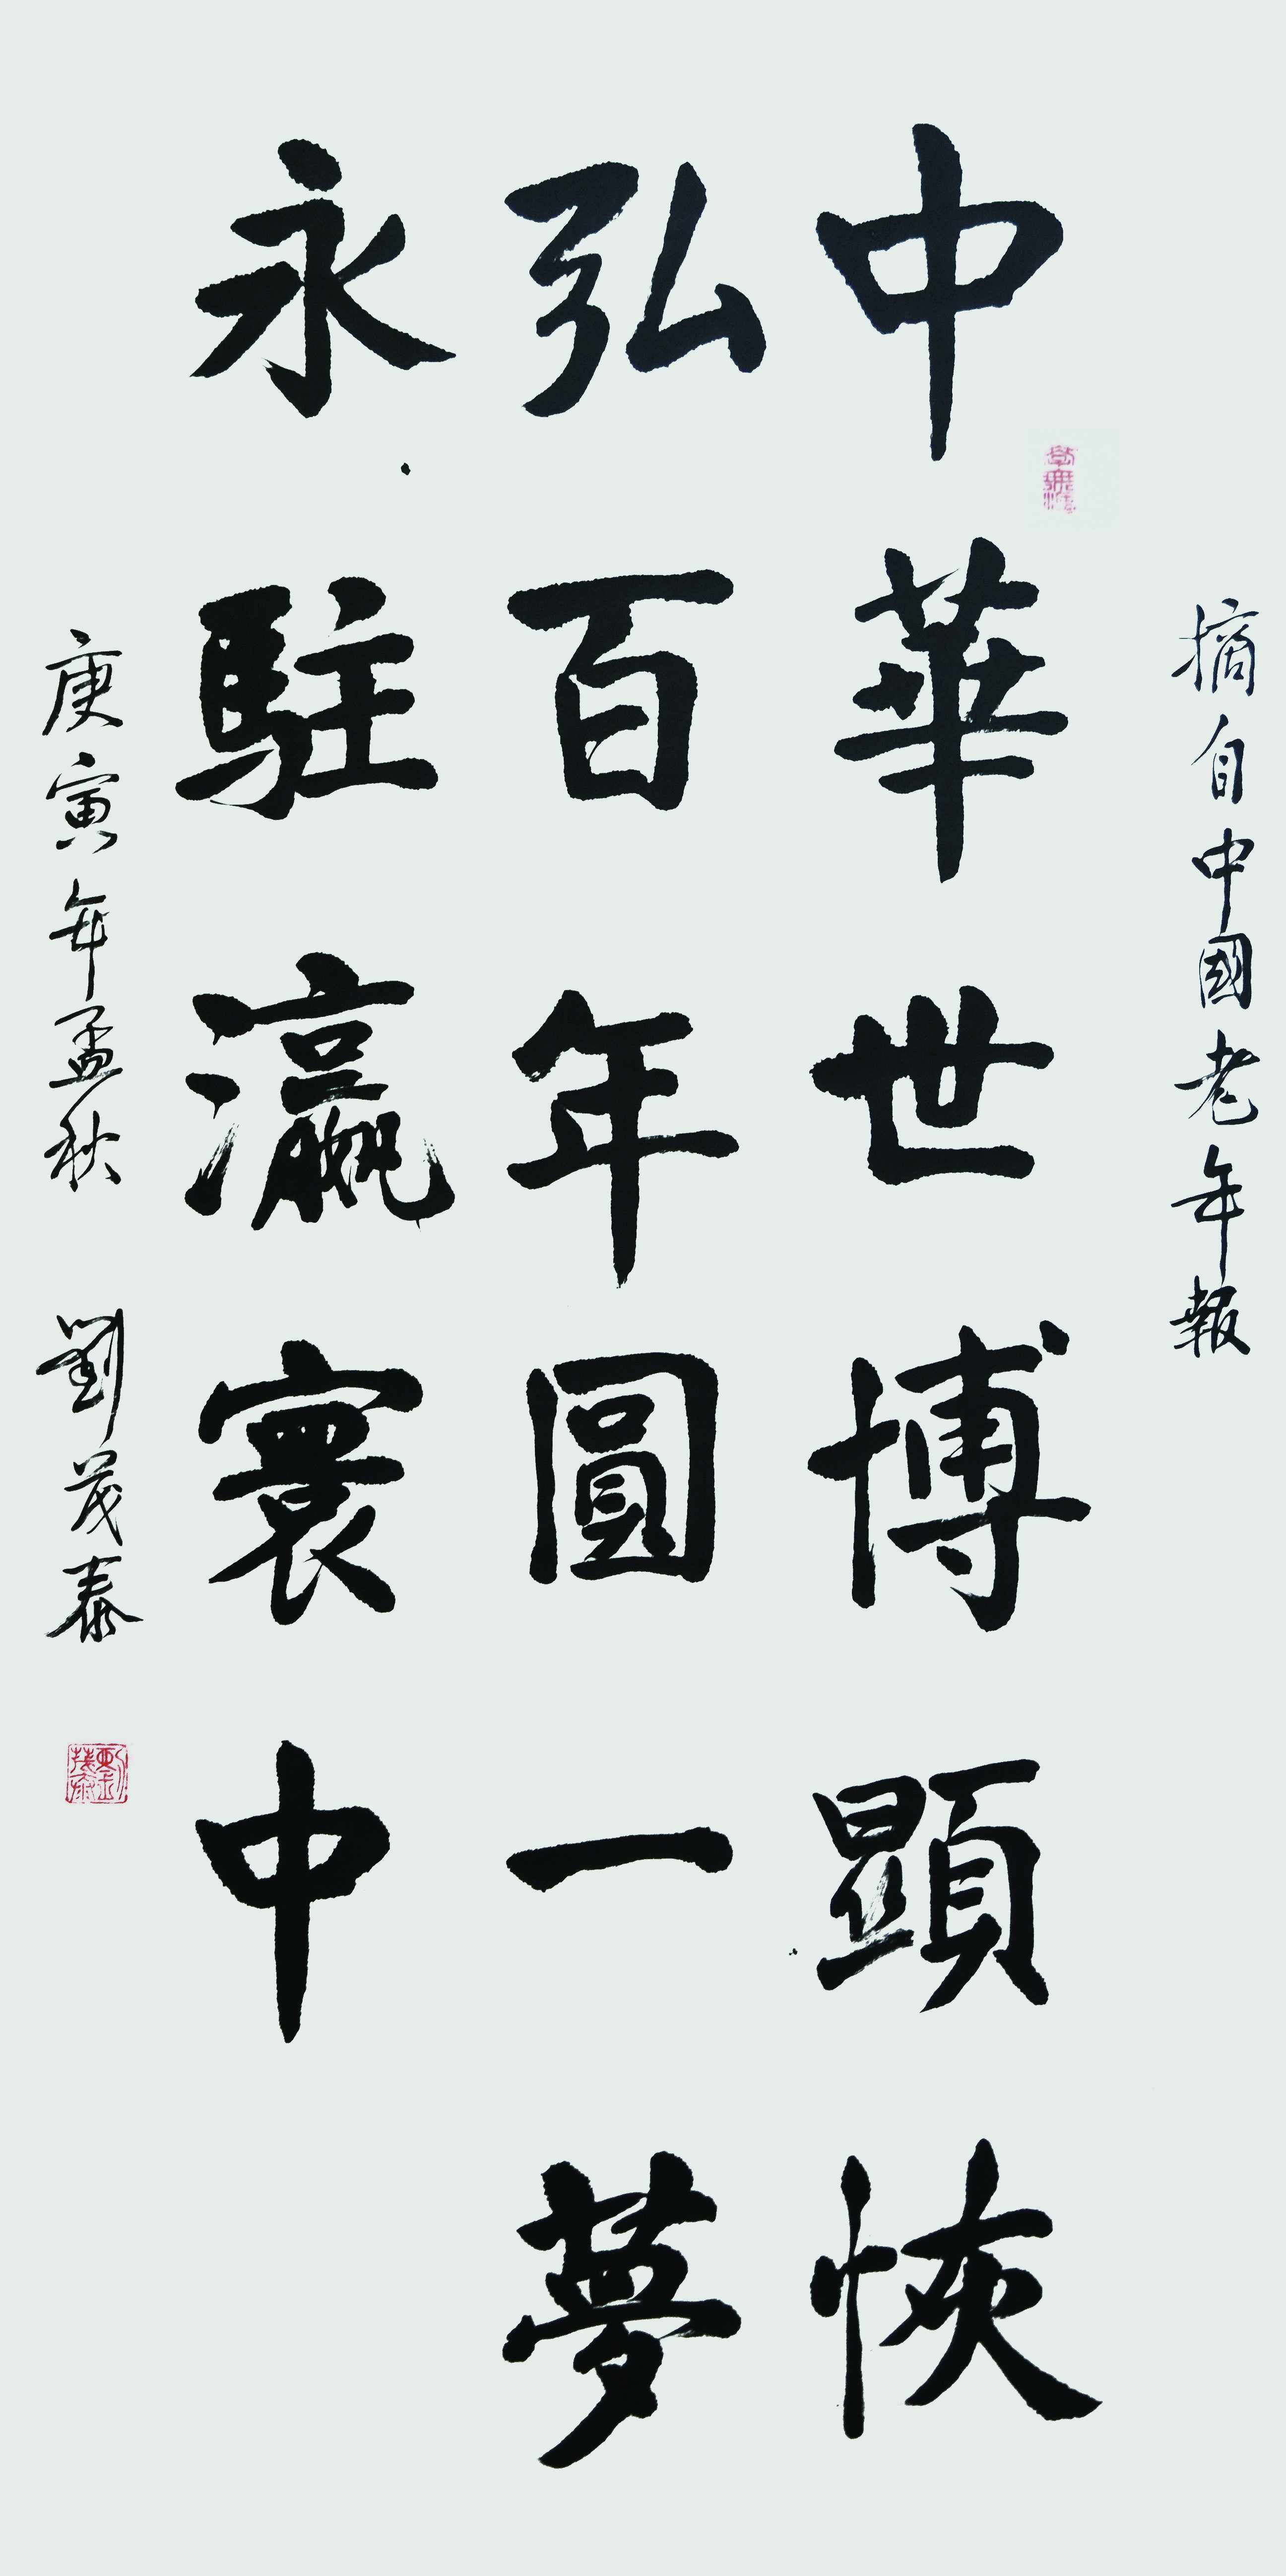 摘自中國老年報
中華世博顯恢
弘百年圓一夢
永駐瀛寰中
庚寅年孟秋 劉茂泰